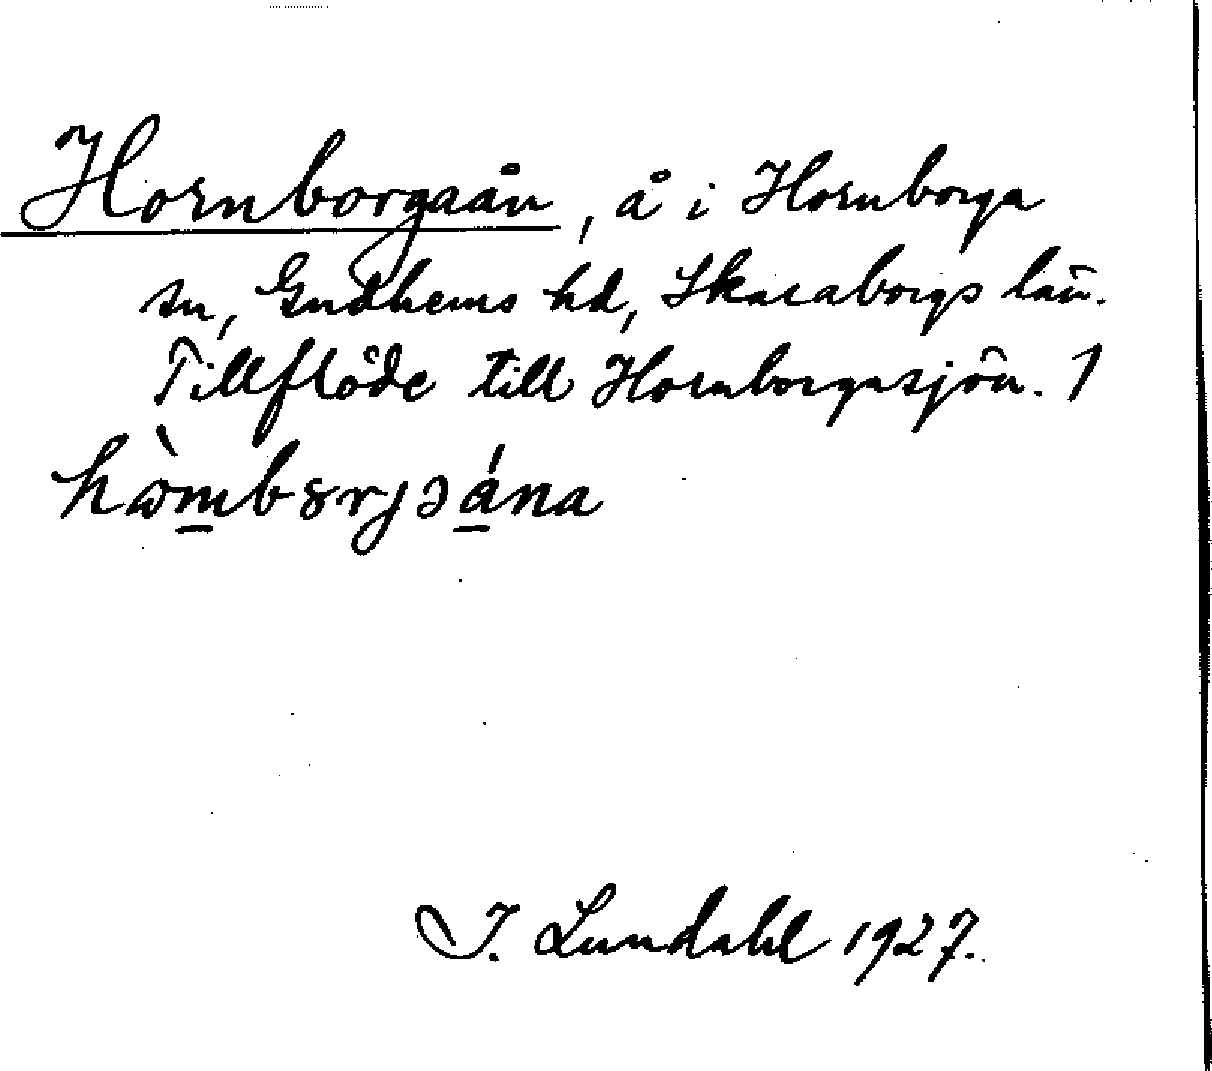 Hornborgaån, å i Hornborga
sn, Gudhems hd, Skaraborgs län.
Tillflöde till Hornborgasjön. 1
I. Lundahl 1927.